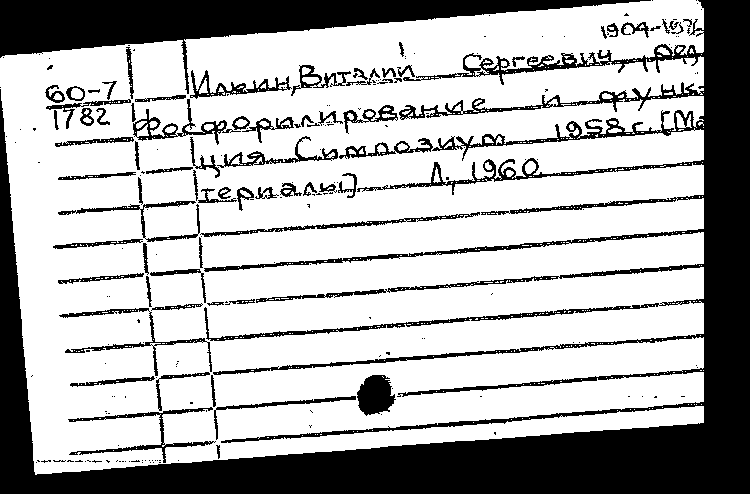 1904-1976
60-7
1782
Илкин, Виталий Сергеевич, ред.
Фосфорилирование и функ-
ция Симпозиум 1958 г. [Ма
териалы] Л., 1960